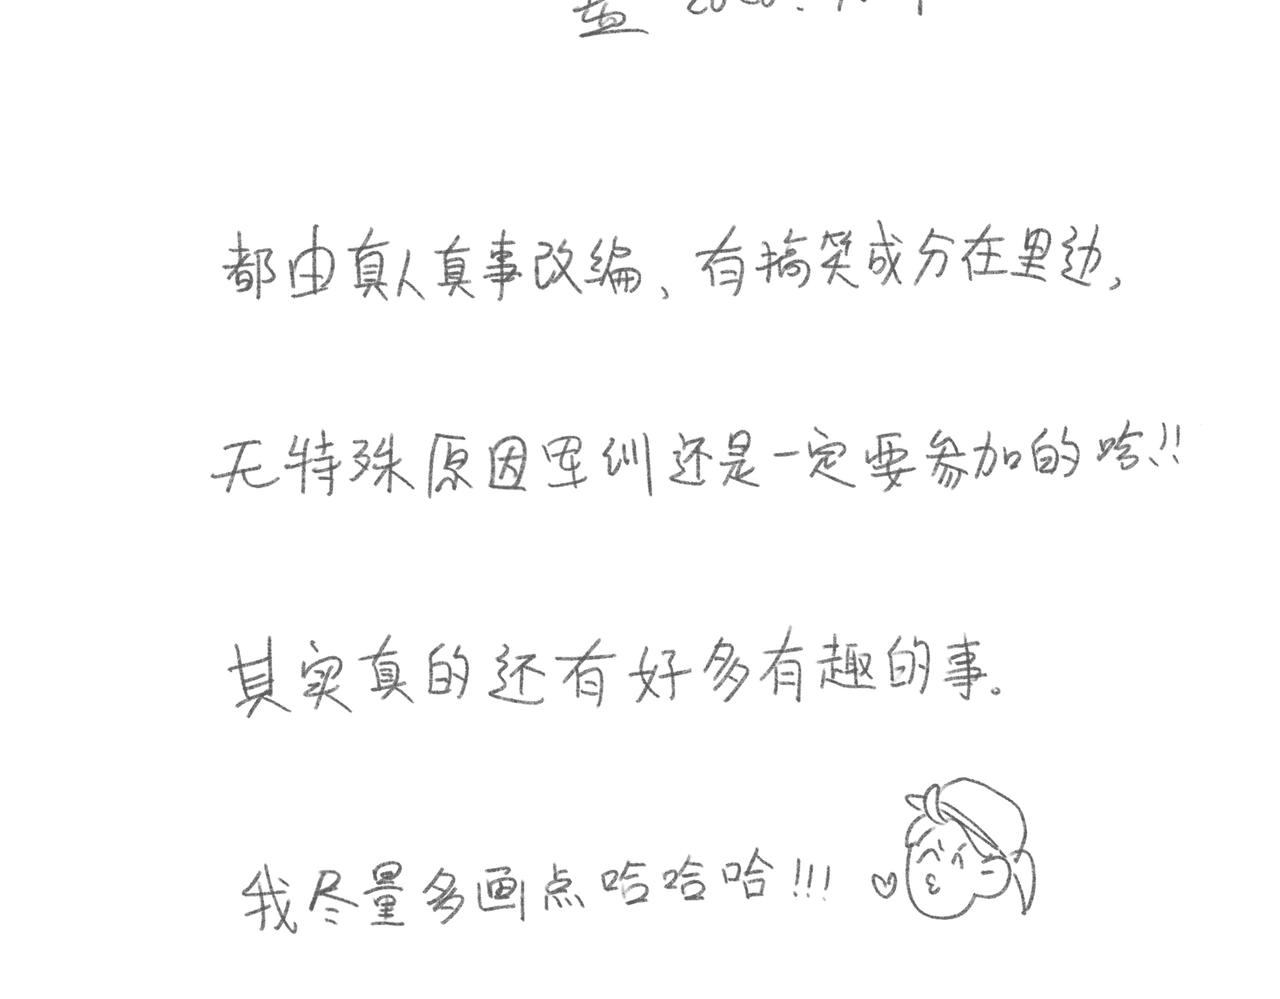 都由真人真事改编、有搞笑成分在里边,
无特殊原因军训还是一定要参加的哈!!
其实真的还有好多有趣的事。
我尽量多画点哈哈哈!!!